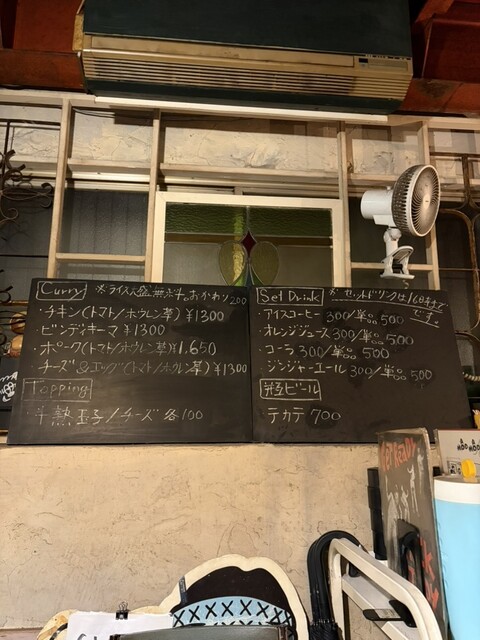 Curry ※ライス大盛無料。おかわり200
・チキン(トマト/ホウレン草) ¥1300
・ビンディキーマ ¥1300
・ポーク(トマト/ホウレン草)¥1.650
・チーズ&エッグ(トマト/ホウレン草) ¥1300
Topping
・半熟玉子/チーズ 各100
Set Drink ※セットドリンクは16時まで
です。
・アイスコーヒー 300/単品 500
・オレンジジュース 300/単品 500
・コーラ 300/単品 500
・ジンジャーエール 300/単品 500
ビール
・テカテ 700